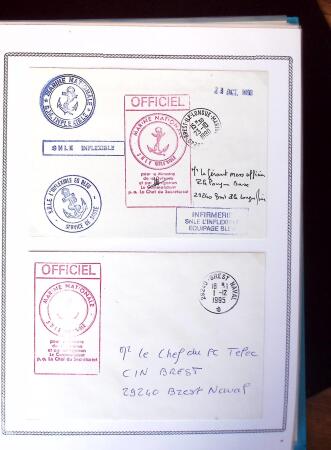 OFFICIEL
MARINE NATIONALE
S.N.L.E. INFLEXIBLE
23 OCT. 1998
MARINE NATIONALE
SNLE INFLEXIBLE
pour le Ministre
de la Défense
et par délégation
Le Commandant
p.o. Le Chef du Secrétariat
SNLE L'INFLEXIBLE EQ BLEU
SERVICE DE
Mr le Gérant mess officiers
INFIRMERIE
SNLE L'INFLEXIBLE
EQUIPAGE BLEU
OFFICIEL
MARINE NATIONALE
pour le Ministre
de la Défense
et par délégation
Le Commandant
p.o. Le Chef du Secrétariat
29240 BREST NAVAL
1-12
1995
Mr le Chef du PC Telec
CIN BREST
29240 Brest Naval